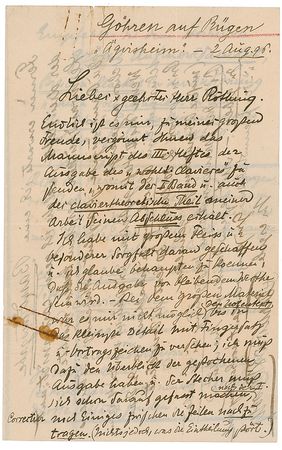 Göhren auf Rügen
"Ägirsheim". – 2 Aug. 96.
Lieber geehrter Herr Röthing.
Endlich ist es mir, zu meiner großen
Freude, vergönnt Ihnen das
Manuscript des IIIten Heftes der
Ausgabe des „wohlt. Claviers" zu
senden, womit der I Band u. auch
der claviertheoretische Theil meiner
Arbeit seinen Abschluss erhält.
Ich habe mit großem Fleiss und
besonderer Sorgfalt daran geschaffen
u. ich glaube behaupten zu koennen,
daß die Ausgabe von bleibendem Werthe
sein wird. – Bei dem großen Material
war es mir nicht möglich bis in
das kleinste Detail mit Fingersatz
u. Vortragszeichen zu versehen; ich muß
dazu den Überblick der gestochenen
Ausgabe haben u. der Stecher muß
sich schon darauf gefasst machen,
noch Einiges zwischen die Zeilen nachzu-
Correctur
tragen. (nichts jedoch, was die Eintheilung stört.)